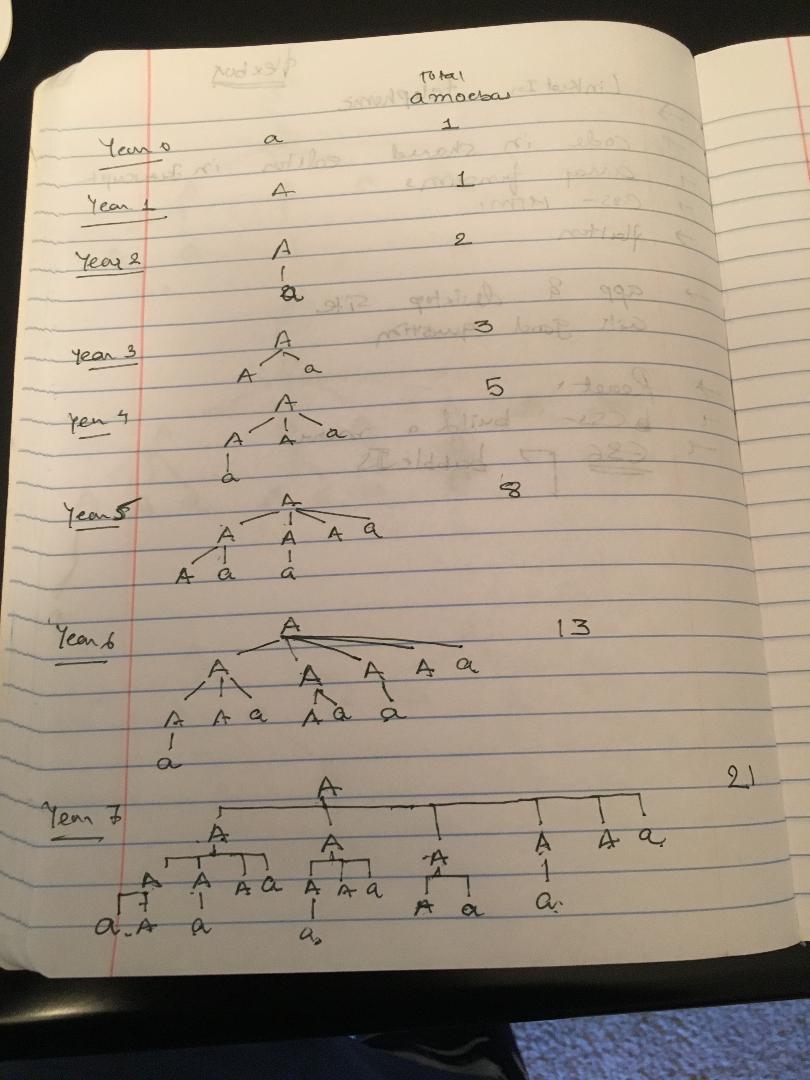 Total
amoebas
Year 0 a 1
Year 1 A 1
Year 2 A 2
a
Year 3 A 3
A a
Year 4 A 5
A A a
a
Year 5 A 8
A A A a
A a a
Year 6 A 13
A A A A a
A A a A a a
a
Year 7 A 21
A A A A A a
A A A a A A a A a a
a A a a